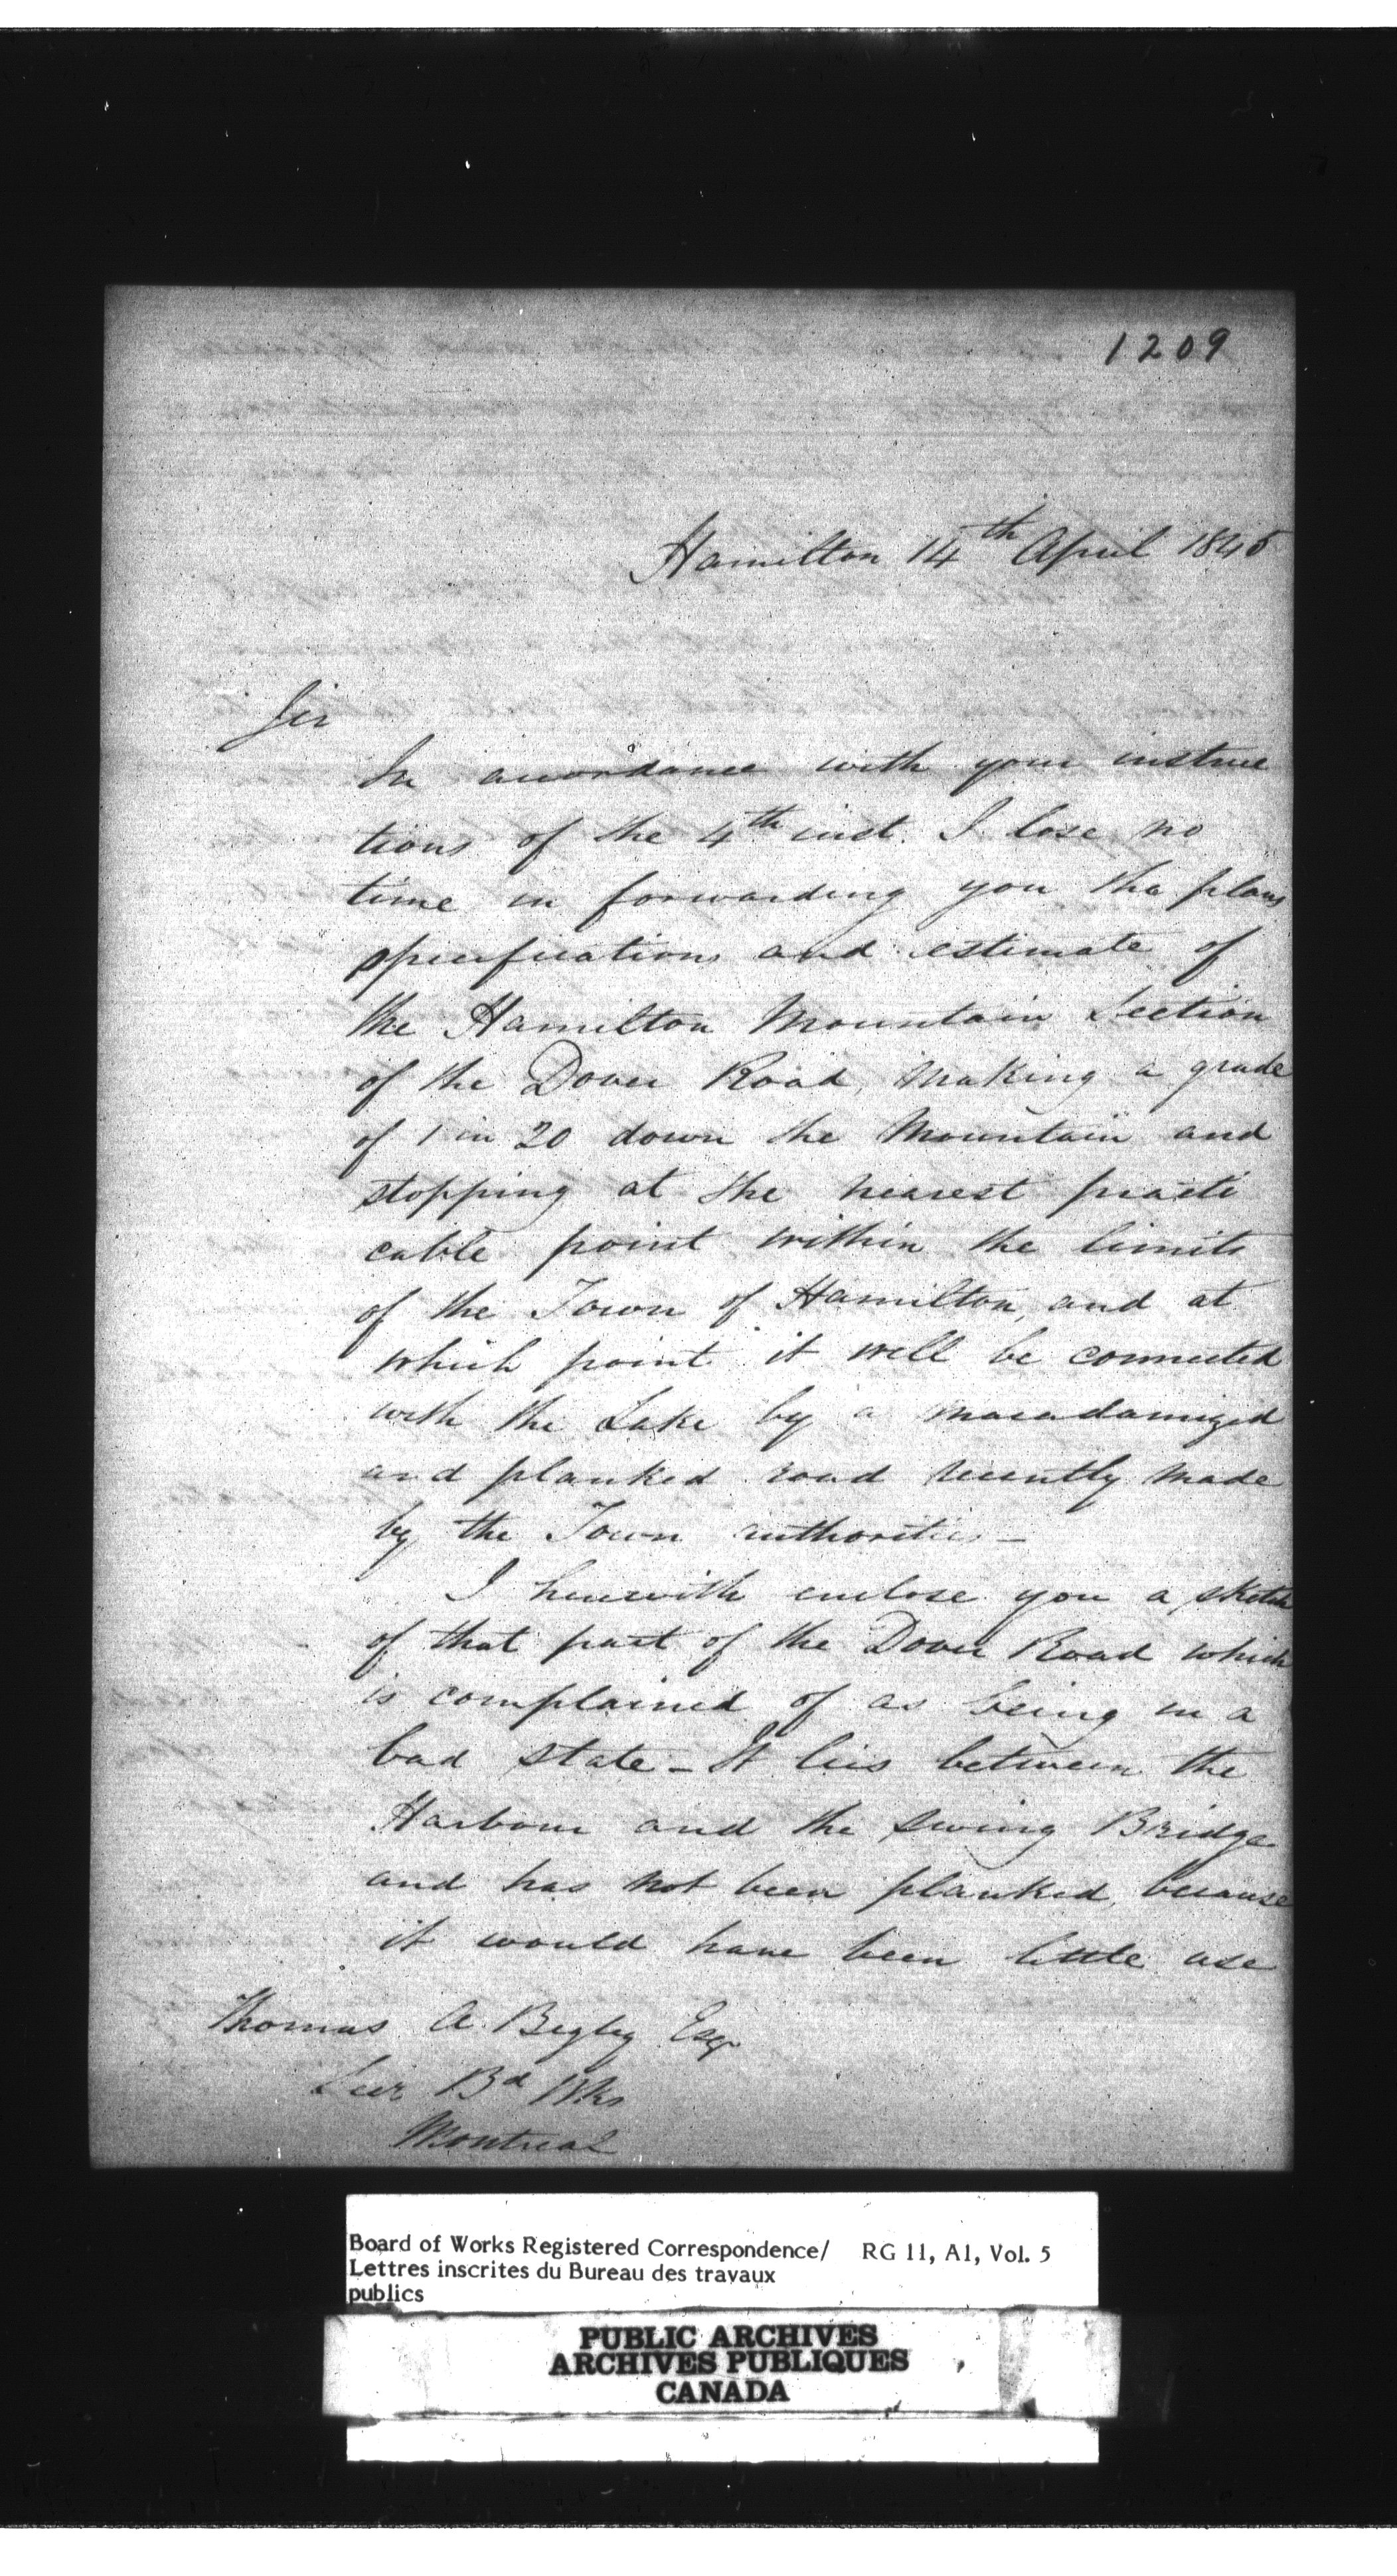 1209
Hamilton 14th April 1845
Sir
In accordance with your instruc
tions of the 4th inst. I lose no
time in forwarding you the plans,
specifications and estimate of
the Hamilton Mountain Section
of the Dover Road, making a grade
of 1 in 20 down the Mountain and
stopping at the nearest practi
cable point within the limits
of the Town of Hamilton, and at
which point it will be connected
with the Lake by a macadamized
and planked road recently made
by the Town authorities –
I herewith enclose you a sketch
of that part of the Dover Road which
is complained of as being in a
bad state – It lies between the
Harbour and the Swing Bridge
and has not been planked, because
it would have been little use
Thomas A. Begly Esqr
Secr Bd Wks
Montreal
Board of Works Registered Correspondence/ RG 11, A1, Vol. 5
Lettres inscrites du Bureau des travaux
publics
PUBLIC ARCHIVES
ARCHIVES PUBLIQUES
CANADA